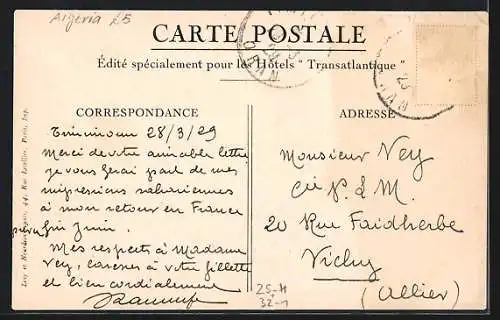 Algeria £5
CARTE POSTALE
Édité spécialement pour les Hôtels " Transatlantique "
CORRESPONDANCE
Timimoun 28/3/29
Merci de votre aimable lettre
je vous ferai part de mes
impressions sahariennes
à mon retour en France
fin juin.
Mes respects à Madame
Vey, caresses à votre fillette
et bien cordialement
ADRESSE
Monsieur Vey
Cie P. L. M.
20 Rue Faidherbe
Vichy
(Allier)
25-H
32-1
Levy et Neurdein réunis, 44, Rue Letellier, Paris, Imp.
ORAN